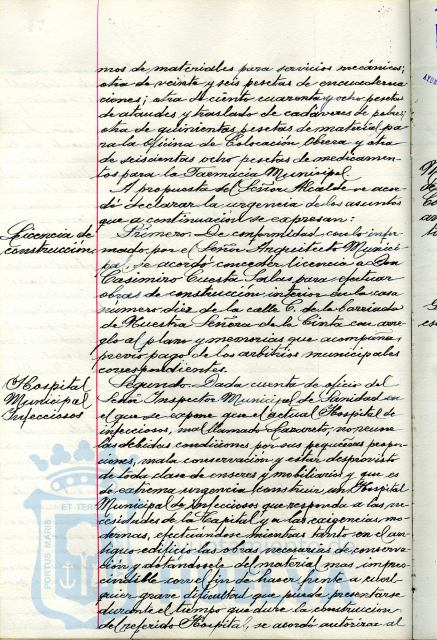 mos de materiales para servicios mecánicos;
otra de veinte y seis pesetas de encuaderna
ciones; otra de ciento cuarenta y ocho pesetas
de ataudes y traslado de cadáveres de pobres;
otra de quinientas pesetas de material pa
ra la Oficina de Colocación Obrera y otra
de seiscientas ocho pesetas de medicamen
tos para la Farmacia Municipal.
A propuesta del Señor Alcalde se acor
dó declarar la urgencia de los asuntos
que a continuación se expresan:
Licencia de
construcción.
Primero. De conformidad con lo infor
mado por el Señor Arquitecto Munici
pal, se acordó conceder licencia a Don
Casimiro Cuesta Salas para efectuar
obras de construcción interior en la casa
número diez de la calle C. de la barriada
de Nuestra Señora de la Cinta con arre
glo al plano y memorias que acompaña,
previo pago de los arbitrios municipales
correspondientes.
Hospital
Municipal
Infecciosos
Segundo. Dada cuenta de oficio del
Señor Inspector Municipal de Sanidad en
el que se expone que el actual Hospital de
infecciosos, mal llamado Lazareto, no reune
las debidas condiciones por sus pequeñas propor
ciones, mala conservación y estar desprovisto
de toda clase de enseres y mobiliario y que es
de extrema urgencia construir un Hospital
Municipal de Infecciosos que responda a las ne
cesidades de la Capital y a las exigencias mo
dernas, efectuandose mientras tanto en el an
tiguo edificio las obras necesarias de conserva
ción y dotándosele del material mas impres
cindible con el fin de hacer frente a cual
quier grave dificultad que pueda presentarse
durante el tiempo que dure la construcción
del referido Hospital, se acordó autorizar al
PORTUS MARIS
ET TER